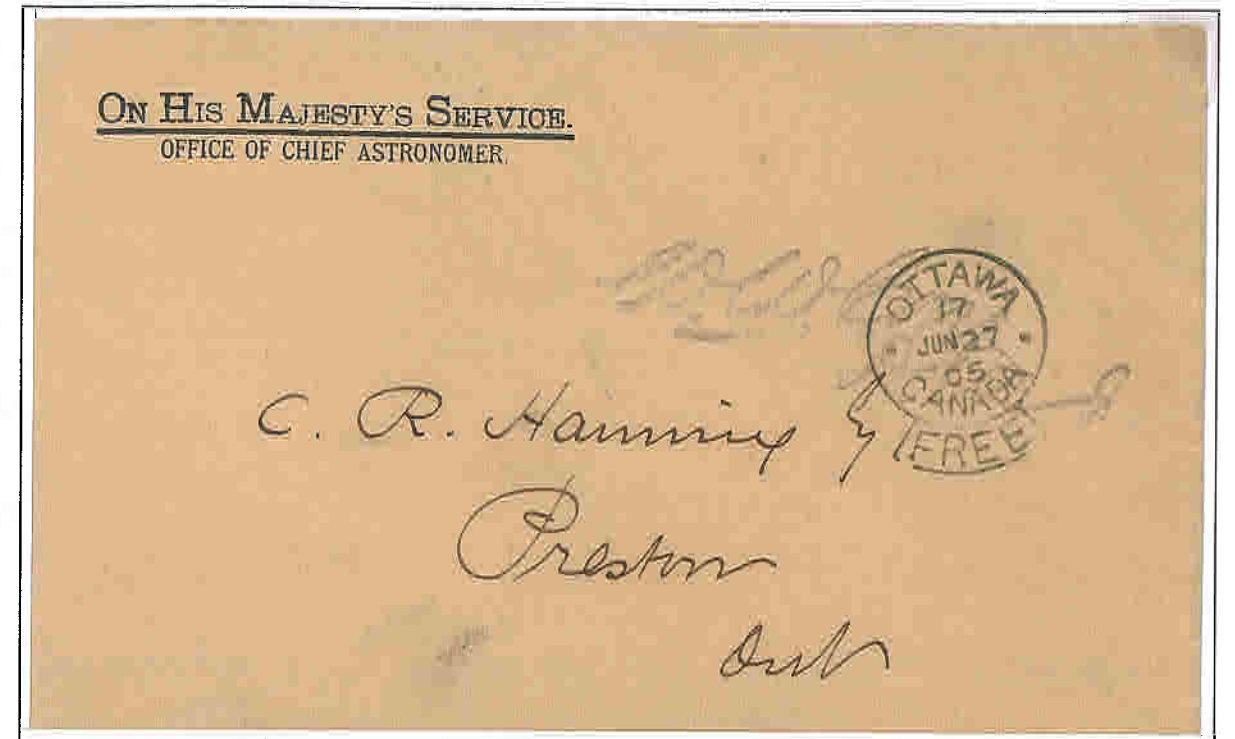 ON HIS MAJESTY'S SERVICE.
OFFICE OF CHIEF ASTRONOMER.
OTTAWA
17
JUN 27
05
CANADA
FREE
C. R. Hanning
Preston
Ont